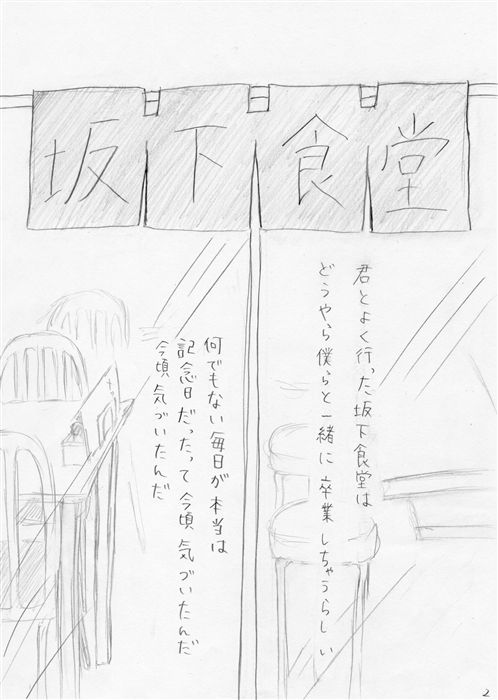 坂下食堂
君とよく行った坂下食堂は
どうやら僕らと一緒に卒業しちゃうらしい
何でもない毎日が本当は
記念日だったって今頃気づいたんだ
今頃気づいたんだ
2